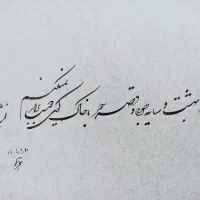 بهشت و سایه طوبی و قصر و حور با خاک کوی دوست برابر نمیکنم